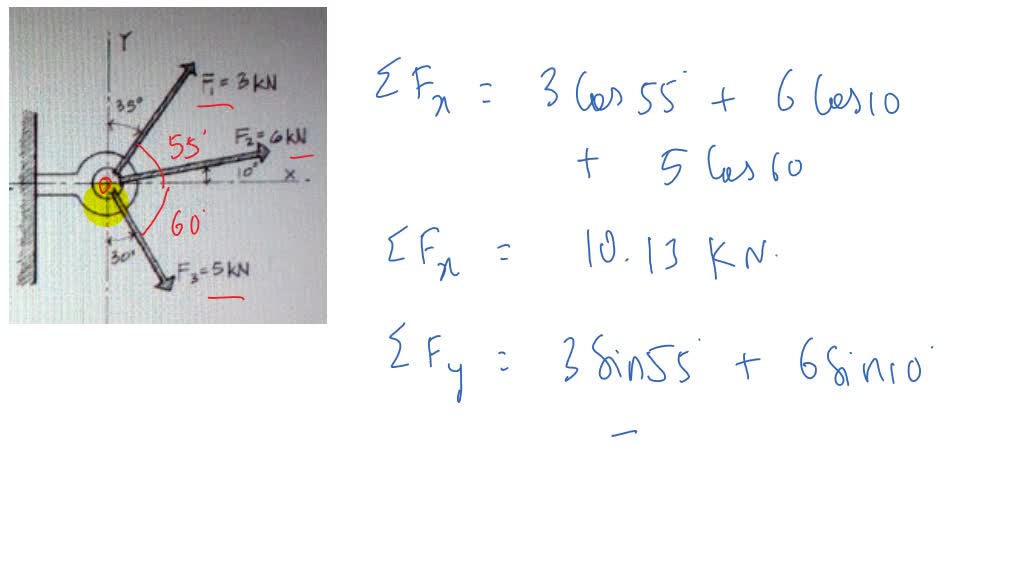 Y
F₁ = 3 kN
35°
55°
F₂ = 6 kN
10°
X
O
60°
30°
F₃ = 5 kN
ΣFx = 3 Cos 55° + 6 Cos 10
+ 5 Cos 60
ΣFx = 10.13 KN.
ΣFy = 3 Sin 55° + 6 Sin 10°
–